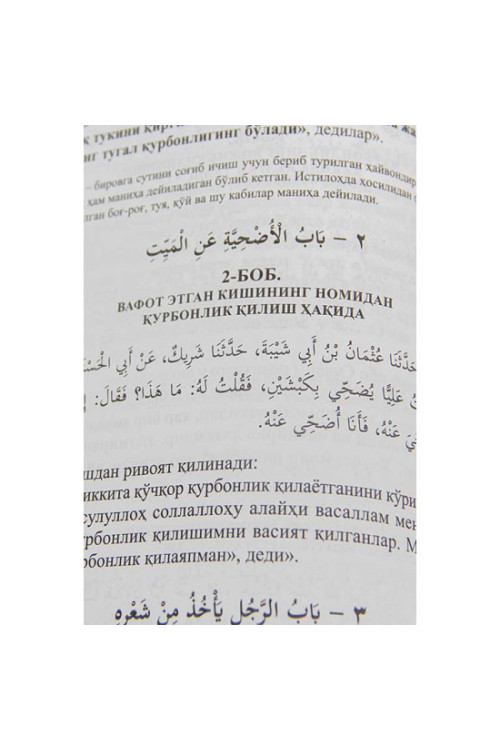 тукини
нг тугал қурбонлигинг бўлади», дедилар».
– бировга сутини соғиб ичиш учун бериб турилган ҳайвондир
ҳам маниҳа дейиладиган бўлиб кетган. Истилоҳда ҳосилидан
лган боғ-роғ, туя, қўй ва шу кабилар маниҳа дейилади.
٢ – بَابُ الْأُضْحِيَّةِ عَنِ الْمَيِّتِ
2-БОБ.
ВАФОТ ЭТГАН КИШИНИНГ НОМИДАН
ҚУРБОНЛИК ҚИЛИШ ҲАҚИДА
حَدَّثَنَا عُثْمَانُ بْنُ أَبِي شَيْبَةَ، حَدَّثَنَا شَرِيكٌ، عَنْ أَبِي الْحَسْنَ
عَلِيًّا يُضَحِّي بِكَبْشَيْنِ، فَقُلْتُ لَهُ: مَا هَذَا؟ فَقَالَ:
عَنْهُ، فَأَنَا أُضَحِّي عَنْهُ.
шдан ривоят қилинади:
иккита қўчқор қурбонлик қилаётганини кўри
сулуллоҳ соллаллоҳу алайҳи васаллам мен
рбонлик қилишимни васият қилганлар. М
рбонлик қиляпман», деди».
٣ – بَابُ الرَّجُلِ يَأْخُذُ مِنْ شَعْرِهِ